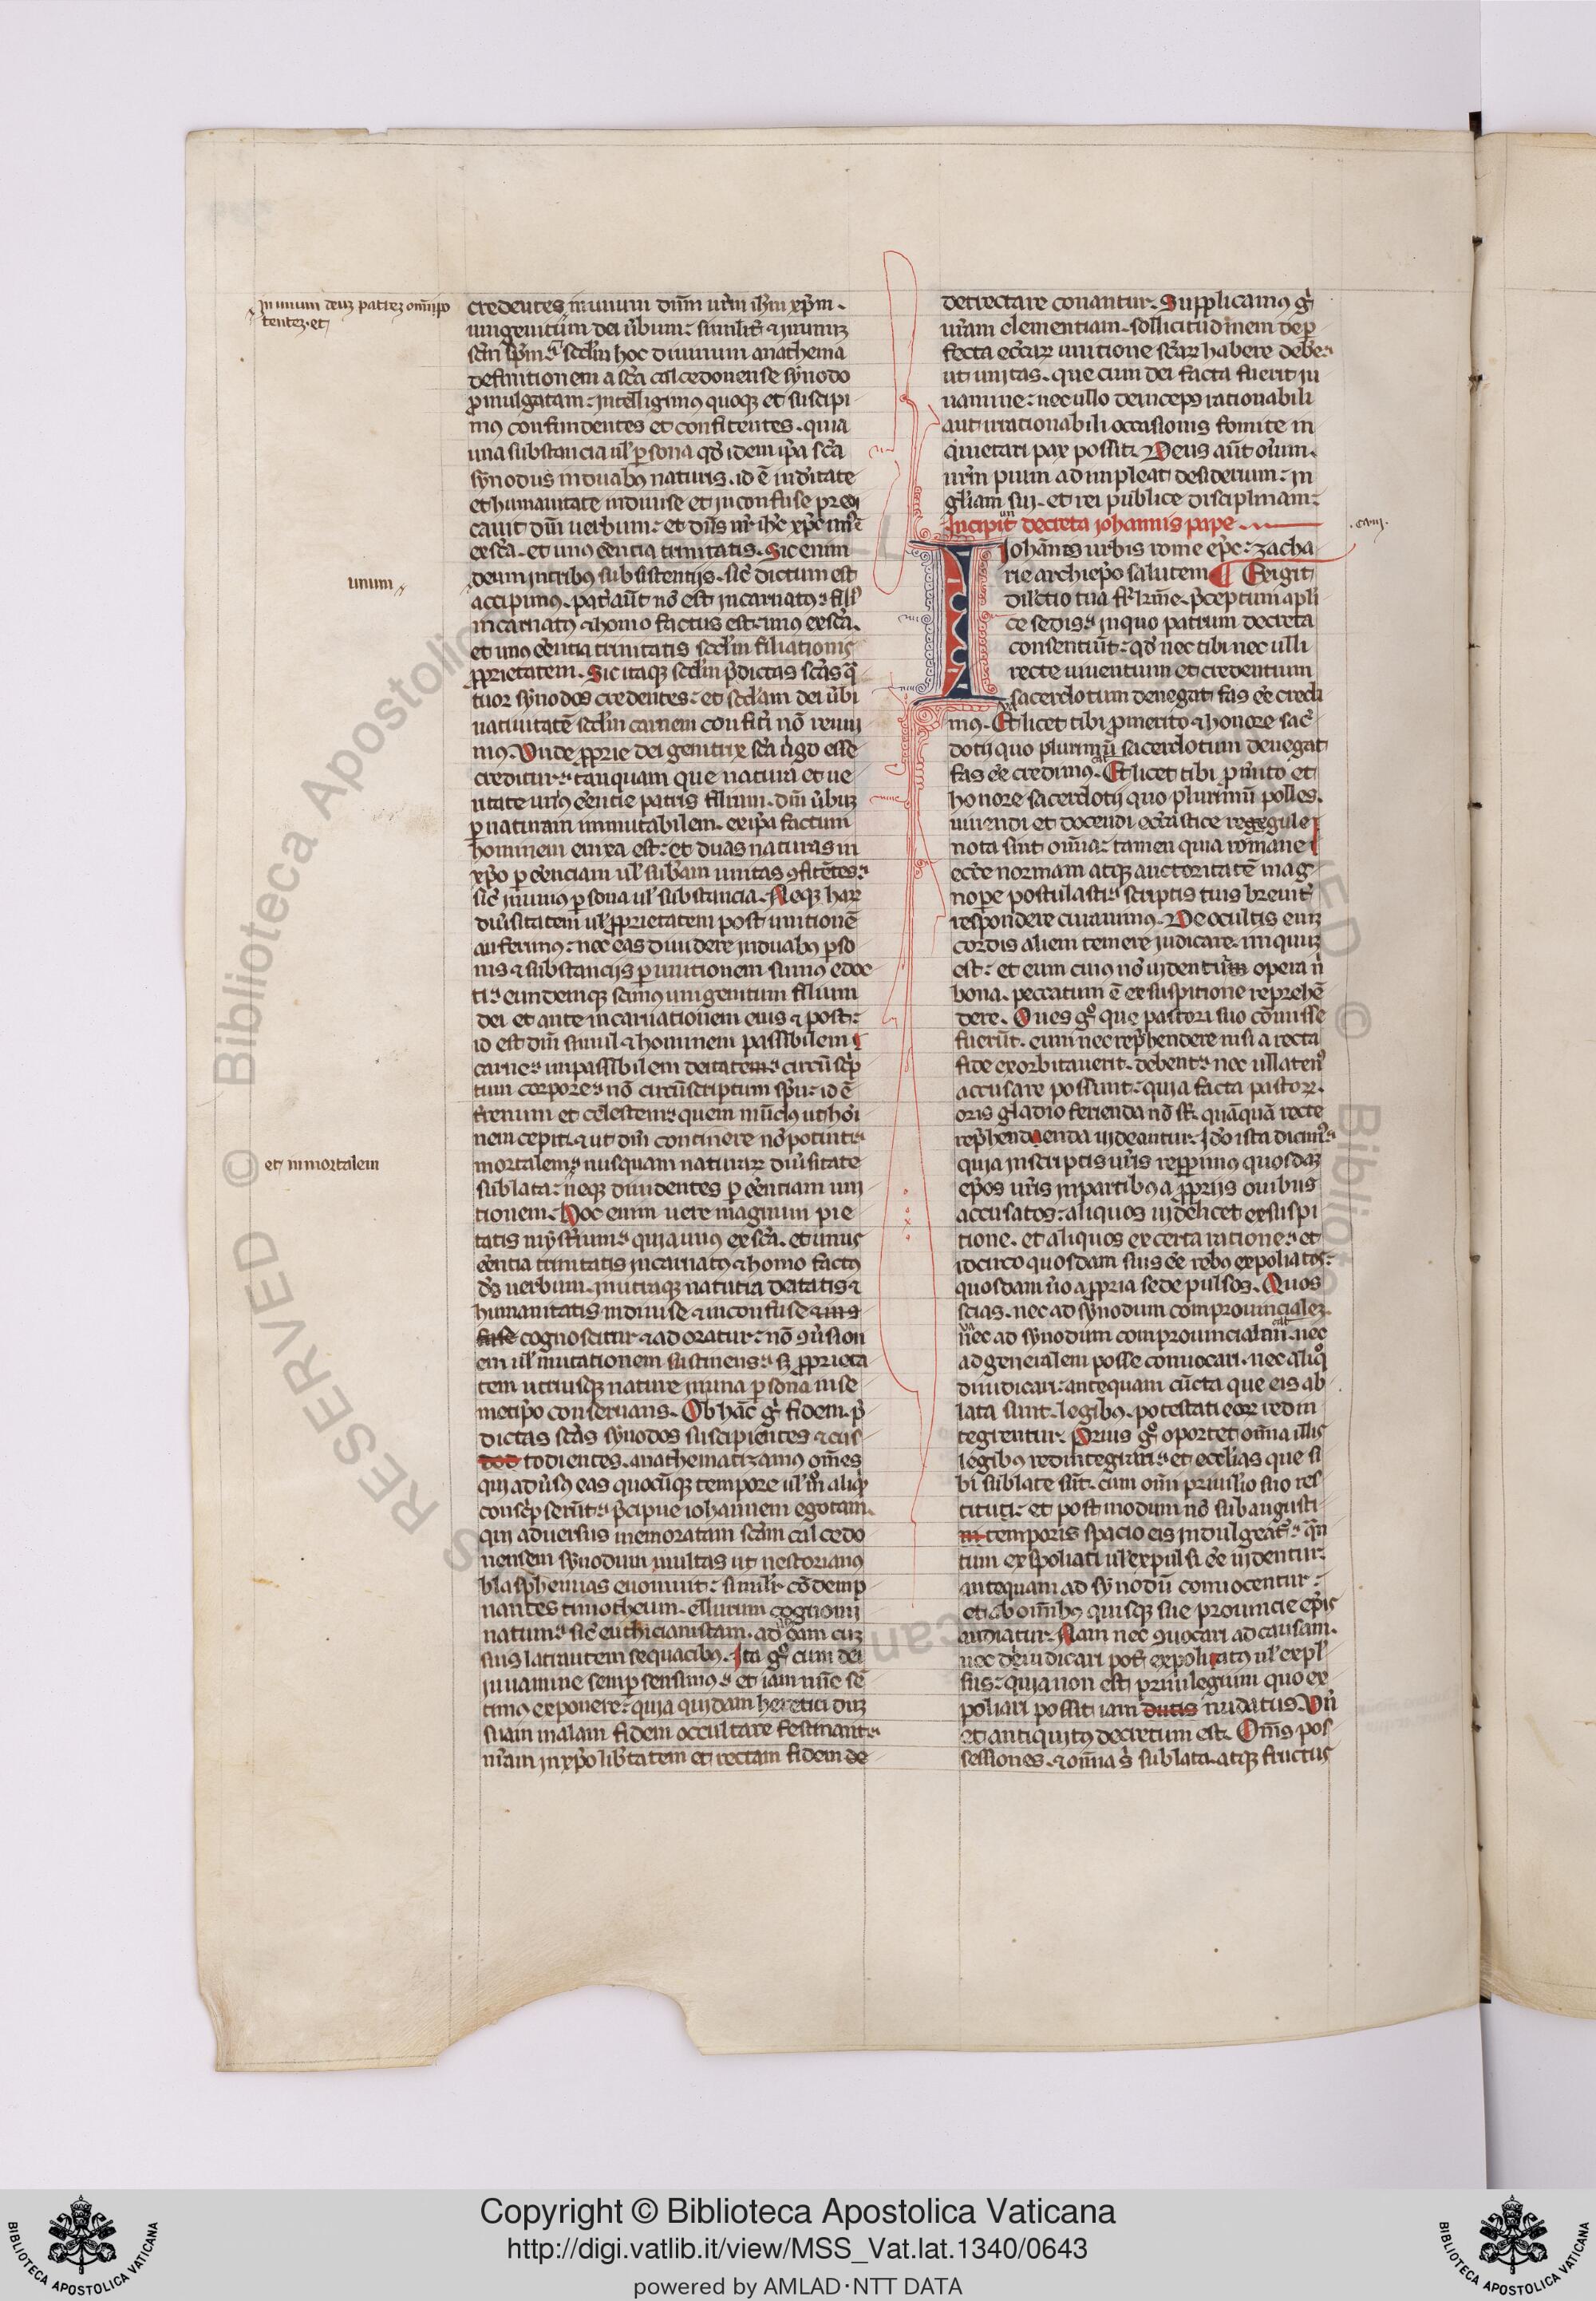 in unum deuʒ patreʒ om̄ipo
tenteʒ. et
credentes in unum dn̄m nr̄m ih̄m xp̄m.
unigenitum dei ūbum: similit̾ & in unuʒ
sc̄m sp̄m. scd̾m hoc diuinum anathema
definitionem a sc̄a calcedonense synodo
promulgatam: intelligimus quoqʒ et suscipi
mus confundentes et confitentes. quia
una substancia ul̾ persona qd̾ idem ip̄a sc̄a
synodus in duabus naturis. id ē in di̾tate
et humanitate indiuise et inconfuse predi
cauit dn̄m uerbum: et dn̄s nr̄ ih̄c xp̄c
ex sc̄a. et unius e̾encia trinitatis. Sic enim
unum
deum in tribus subsistentijs. sic̾ dictum est
accipimus. pat̾ aūt nō est incarnatus. fili
incarnatus & homo factus est. unus ex sc̄a.
et unius e̾entia trinitatis scd̾m filiationis
proprietatem. Sic itaqʒ scd̾m p̄dictas sc̄as q̄
tuor synodos credentes: et scd̾am dei ūbi
natiuitatē scd̾m carnem confit̾i nō renui
mus. Unde proprie dei genitrix sc̄a ūgo esse
creditur. tanquam que natura et ue
ritate unius e̾entie patris filium. dn̄m ūbuʒ
per naturam immutabilem. ex ip̄a factum
hominem enixa est: et duas naturas in
xp̄o per e̾enciam ul̾ sub̄am unitas ꝯfitētes.
sic̾ in unius persona ul̾ substancia. Neqʒ haꝝ
diūsitatem ul̾ proprietatem post unitionē
auferimus: nec eas diuidere in duabus perso
nis & substancijs per unitionem sumus edoc
ti. eundemqʒ scimus unigenitum filium
dei et ante incarnationem eius & post:
id est dn̄m simul & hominem passibilem
carne. impassibilem deitate. circūscrip
tum corpore. nō circūscriptum sp̄u: id ē
terrenum et celestem. quem mūdus ut homi
nem cepit. & ut dn̄m continere nō potuit.
et inmortalem
mortalem. nusquam naturaꝝ diūsitate
sublata: neqʒ diuidentes per e̾entiam uni
tionem. Hoc enim uere magnum pie
tatis mysterium. quia unus ex sc̄a. et unius
e̾entia trinitatis incarnatus & homo factus
ds̄ uerbum. in utraqʒ natura deitatis &
humanitatis indiuise & inconfuse
cognoscitur & adoratur: nō ꝯuersion
em ul̾ mutationem sustinens. sʒ proprieta
tem utriusqʒ nature in una persona in se
metip̄o conseruans. Ob hāc g̾ fidem. p̄
dictas sc̄as synodos suscipientes & cus
todientes. anathematizamus om̄es
qui adūsus eas quocūqʒ tempore ul̾ mō aliquid
conscripserūt. p̄cipue iohannem egotam.
qui aduersus memoratam sc̄am calcedo
nensem synodum multas ut nestorianus
blasphemias euomuit: simil̾r cōdemp
nantes timotheum. ellurum cognomi
natum. sic̾ euthicianistam. ad
suis latitautem sequacibus. Ita g̊ cum dei
iuuamine semper sensimus. et iam nūc sē
timus exponere: quia quidam heretici duʒ
suam malam fidem occultare festinant.
nr̄am in xp̄o lib̾tatem et rectam fidem de
detrectare conantur. Supplicamus g̾
ur̄am clementiam. sollicitudinem de per
fecta ecc̄aꝝ unitione sc̄aꝝ habere debe
ut unitas. que cum dei facta fuerit iu
uamine: nec ullo deinceps rationabili
aut irrationabili occasionis fomite in
quietari pax possit. Deus aūt om̄m.
ur̄m pium adimpleat desiderium: in
gl̾iam sui. et rei publice disciplinam:
Incipiunt decreta iohannis pape
Johānes urbis rome ep̄c: zacha
rie archiep̄o salutem Exigit
dil̾ctio tua fr̄ kr̄me. p̄ceptum ap̄li
ce sedis. in quo patrum decreta
consentiūt: qd̾ nec tibi nec ulli
recte uiuentium et credentium
sacerdotum denegat fas e̾e credi
mus. Et licet tibi pro merito & honore sac̾
dotij quo plurimū sacerdotum denegat
fas e̾e credimus. Et licet tibi pro mer̾ito et
honore sacerdotij quo plurimū polles.
uiuendi et docendi ecc̄astice regegule
nota sint om̄ia: tamen quia romane
ecc̄e normam atqʒ auctoritatē mag
nopere postulasti. scriptis tuis breuit̾
respondere curauimus. De ocultis enim
cordis alieni temere iudicare. iniquuʒ
est: et eum cuius nō uidentur opera n̄
bona. peccatum ē ex suspitione reprehē
dere. Oues g̊ que pastori suo cōmisse
fuerūt. eum nec rep̄hendere nisi a recta
fide exorbitauerit. debent. nec ullatenus
accusare possunt: quia facta pastoꝝ.
oris gladio ferienda nō st̄. quāquā recte
rep̄hendenda uideantur. Ido ista dicimus
quia in scriptis ur̄is repperimus quosdaʒ
ep̄os ur̄is in partibus a proprijs ouibus
accusatos: aliquos uidelicet ex suspi
tione. et aliquos ex certa ratione. et
idcirco quosdam suis e̾e rebus expoliatos:
quosdam ūo a propria sede pulsos. Quos
scias. nec ad synodum comprouincialeʒ.
nec ad synodum comprouincialem. nec
ad generalem posse conuocari. nec aliquo
diiudicari: antequam cūcta que eis ab
lata sunt. legibus. potestati eoꝝ redin
tegrentur. Prius g̊ oportet om̄ia illis
legibus redintegrari. et ecclesias que si
bi sublate sūt. cum om̄i priuil̾io suo res
titui: et post modum nō sub angusti
temporis spacio eis indulgeat̾. quan
tum exspoliati ul̾ expulsi e̾e uidentur
antequam ad synodū conuocentur:
et ab om̄ibus quisqʒ sue prouincie ep̄is
audiatur. Nam nec ꝯuocari ad causam.
nec deiudicari pot̾ expoliatus ul̾ expul
sus: quia non est priuilegium quo ex
poliari possit iam nudatus. Un̄
et antiquitus decretum est. Om̄s pos
sessiones. & om̄ia s̾ sublata. atqʒ fructus
.cam.
Copyright © Biblioteca Apostolica Vaticana
http://digi.vatlib.it/view/MSS_Vat.lat.1340/0643
powered by AMLAD·NTT DATA
BIBLIOTECA APOSTOLICA VATICANA
BIBLIOTECA APOSTOLICA VATICANA